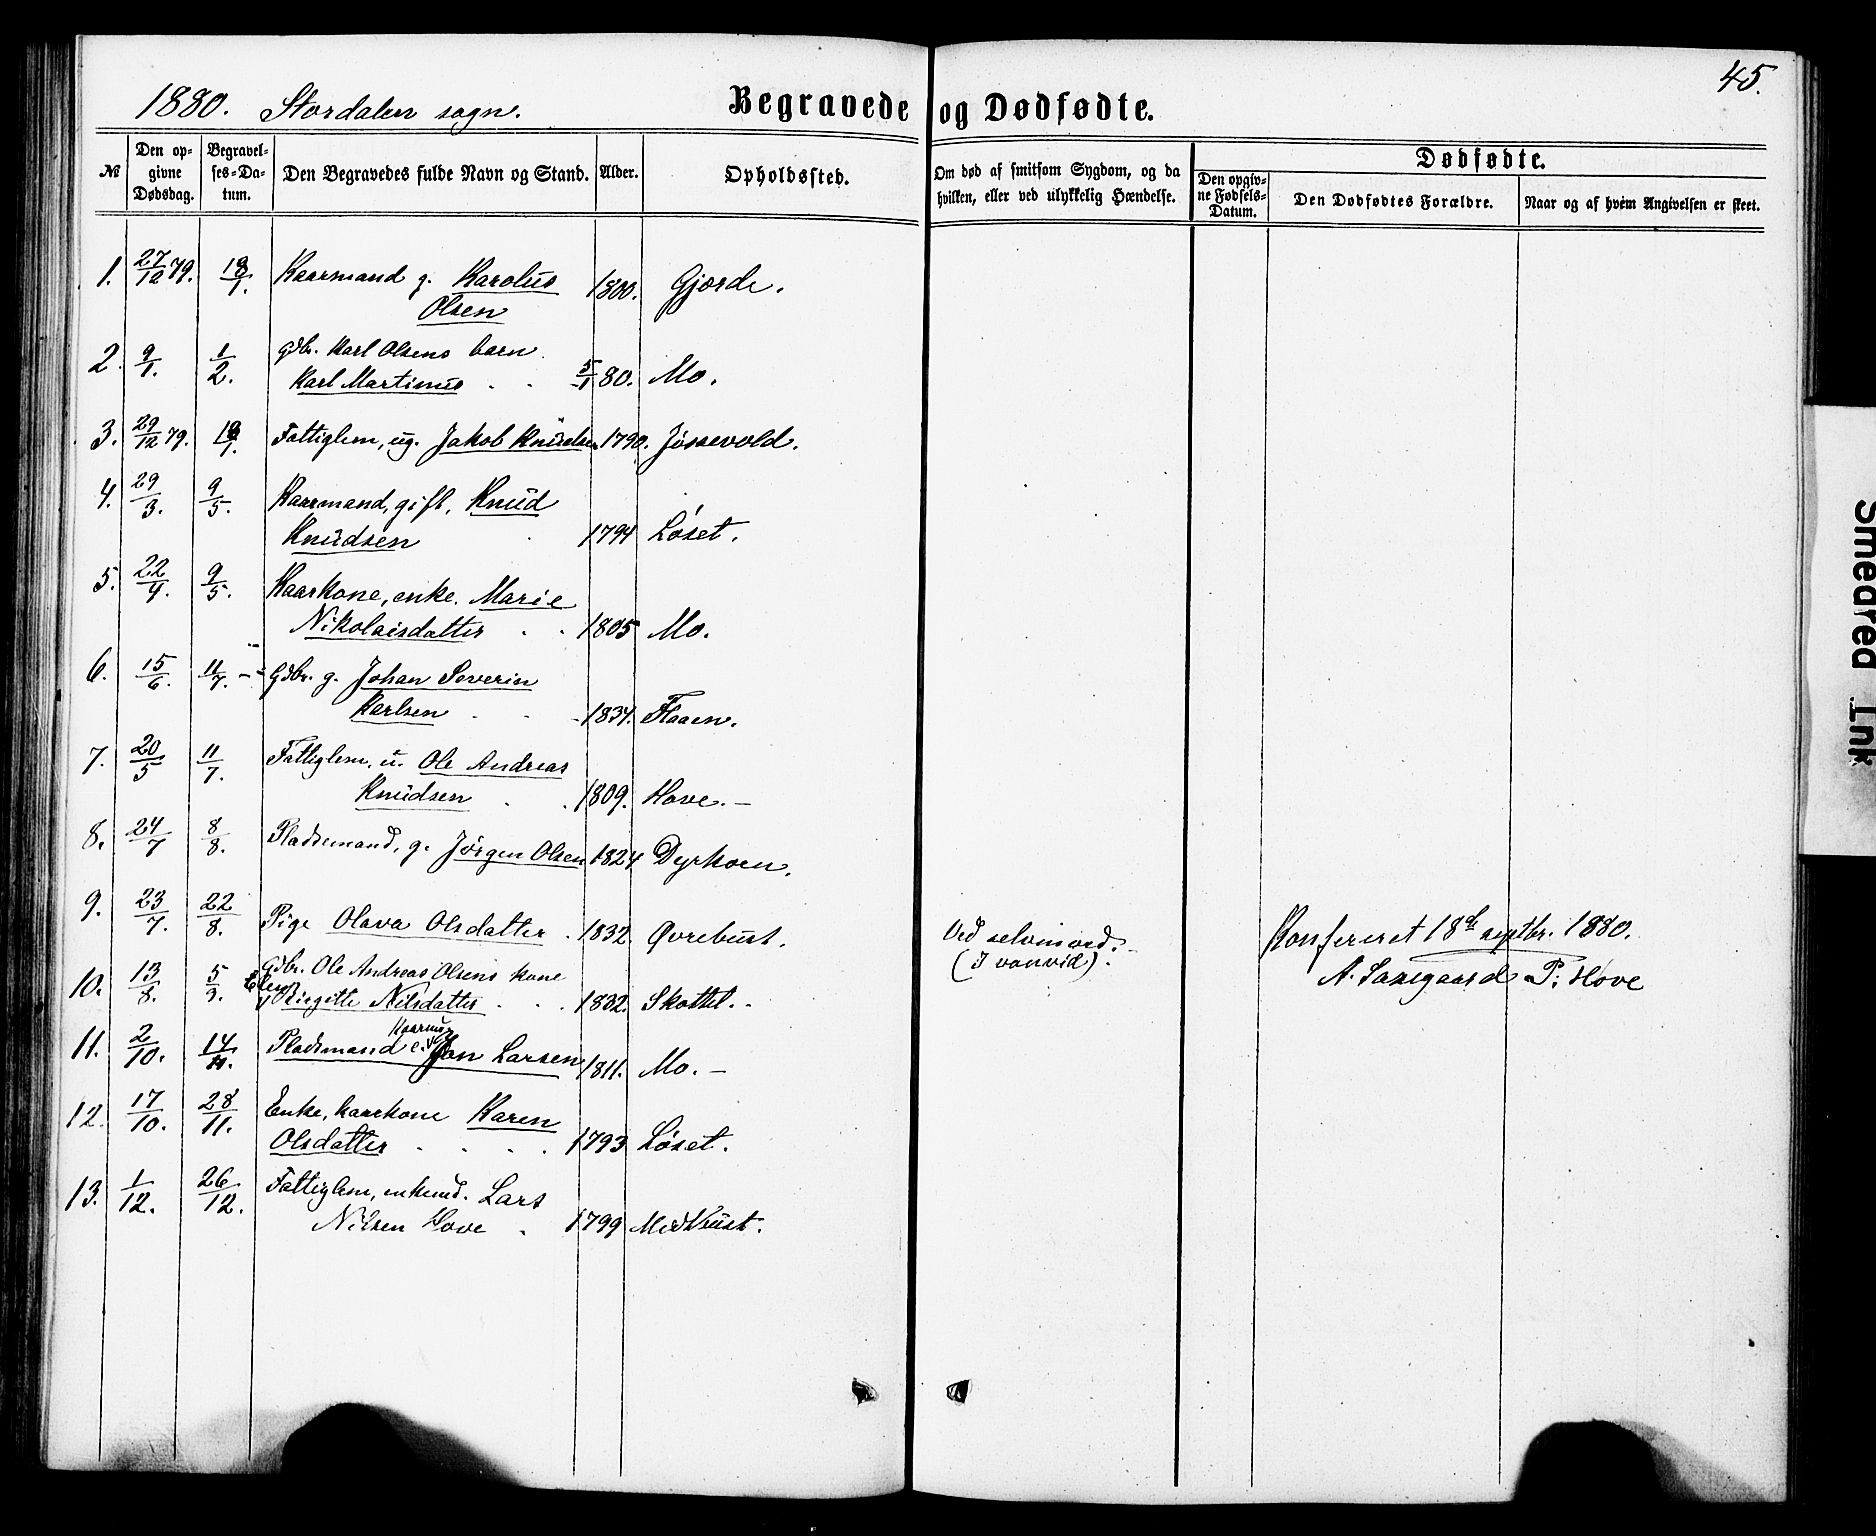 45.
1880. Stordalen sogn. Begravede og Dødfødte.
№ Den opgivne Dødsdag. Begravelses-Datum. Den Begravedes fulde Navn og Stand. Alder. Opholdssted. Om død af smitsom Sygdom, og da hvilken, eller ved ulykkelig Hændelse. Dødfødte. Den opgivne Fødsels-Datum. Den Dødfødtes Forældre. Naar og af hvem Angivelsen er skeet.
1. 27/12 79. 18/1. Kaarmand g. Karolus
Olsen 1800. Gjærde.
2. 9/1. 1/2. Gdbr. Karl Olsens barn
Karl Martinus . . 5/1 80. Mo.
3. 29/12 79. 18/1. Fattiglem, ug. Jakob Knudsen 1790. Jøssevold.
4. 29/3. 9/5. Kaarmand, gift, Knud
Knudsen 1794 Løset.
5. 22/4. 9/5. Kaarkone, enke. Marie
Nikolaisdatter . . 1805 Mo.
6. 15/6. 11/7. Gdbr. g. Johan Severin
Karlsen . . 1834. Flaaen.
7. 20/5 11/7. Fattiglem, u. Ole Andreas
Knudsen . . 1809. Hove. —
8. 24/7 8/8. Pladsemand, g. Jørgen Olsen 1824 Dyrkorn.
9. 23/7. 22/8. Pige Olava Olsdatter . 1832. Øvrebust. Ved selvmord. Konfereret 18de septbr. 1880.
(I vanvid). A. Saxegaard P. Hove
10. 13/8. 5/9. Gdbr. Ole Andreas Olsens kone
Elen Birgitte Nilsdatter . . . 1832. Skottel.
Kaarm.
11. 2/10. 14/11. Pladsmand e. Jon Larsen 1811. Mo. —
12. 17/10. 28/11. Enke, kaarkone Karen
Olsdatter . . . . 1793 Løset.
13. 1/12. 26/12. Fattiglem, enkemd. Lars
Nilsen Hove . 1799 Midtbust.
Smeared Ink